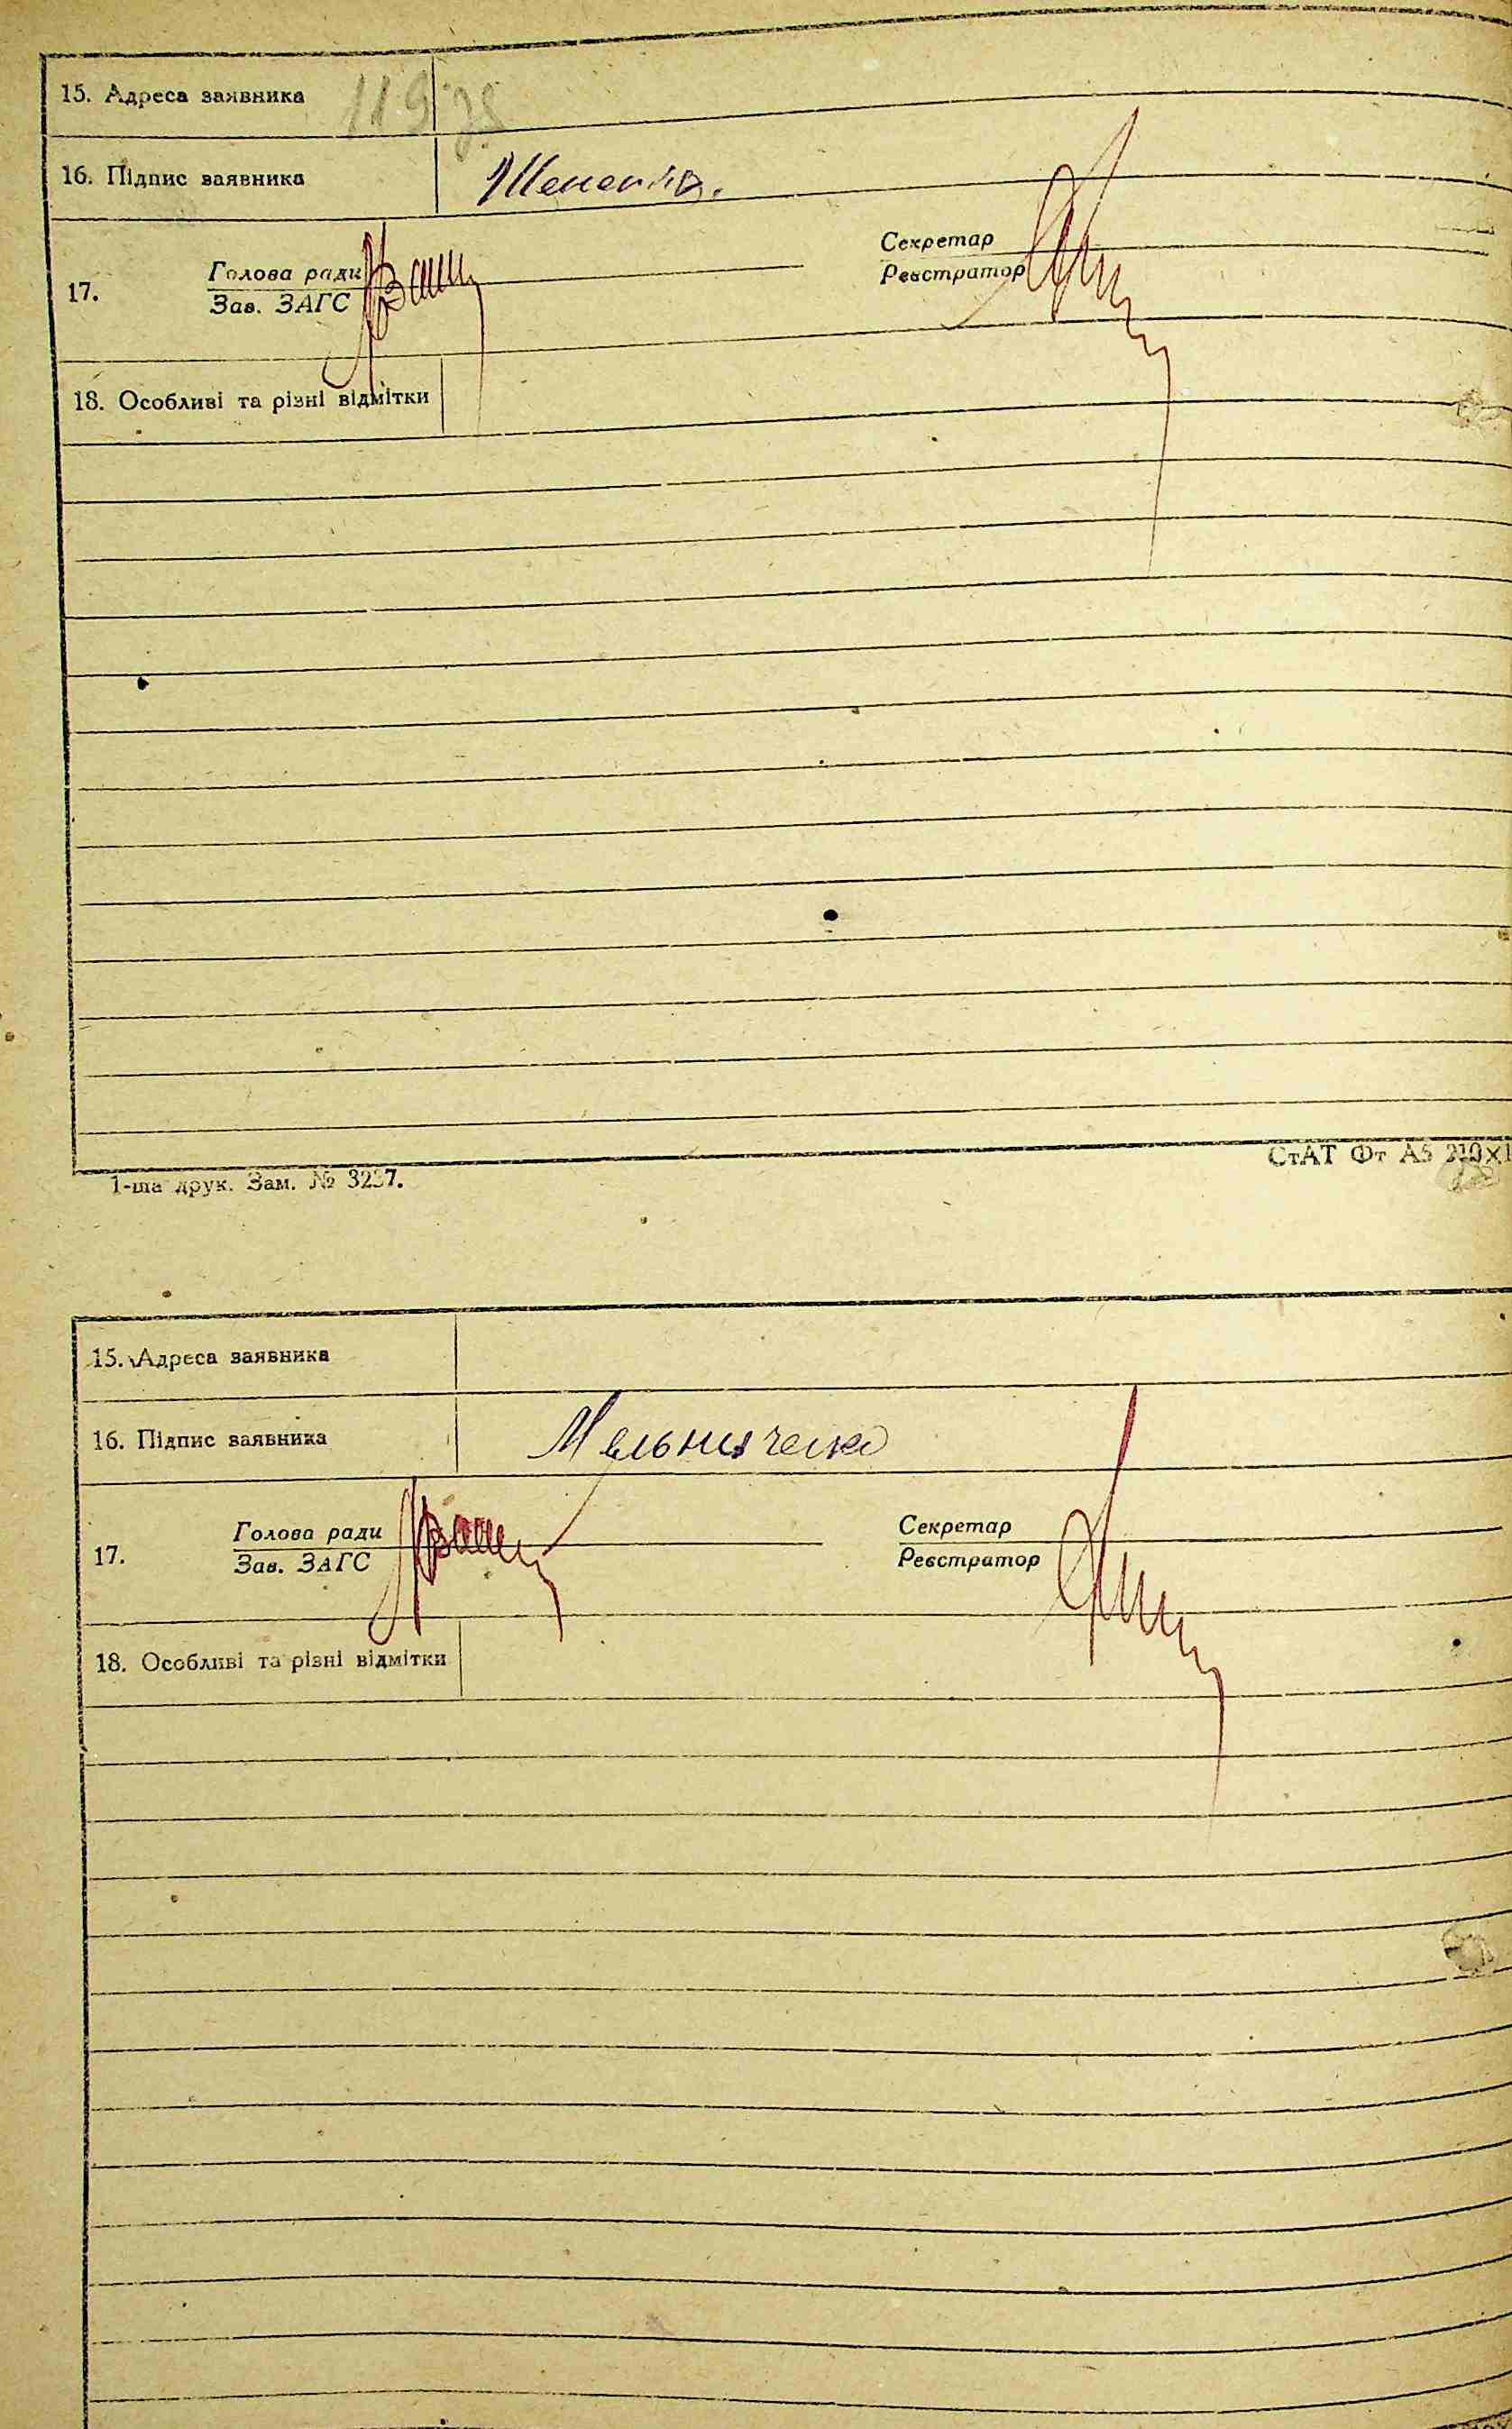 15. Адреса заявника
16. Підпис заявника
17. Голова ради Секретар
Зав. ЗАГС Реєстратор
18. Особливі та різні відмітки
СтАТ Фт А5
1-ша друк. Зам. №
15. Адреса заявника
16. Підпис заявника Мельниченко
17. Голова ради Секретар
Зав. ЗАГС Реєстратор
18. Особливі та різні відмітки